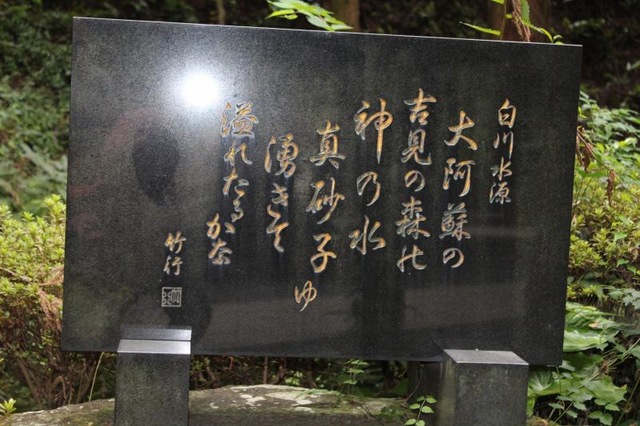 白川水源
大阿蘇の
吉見の森の
神の水
真砂子ゆ
湧きて
溢れたるかな
竹行